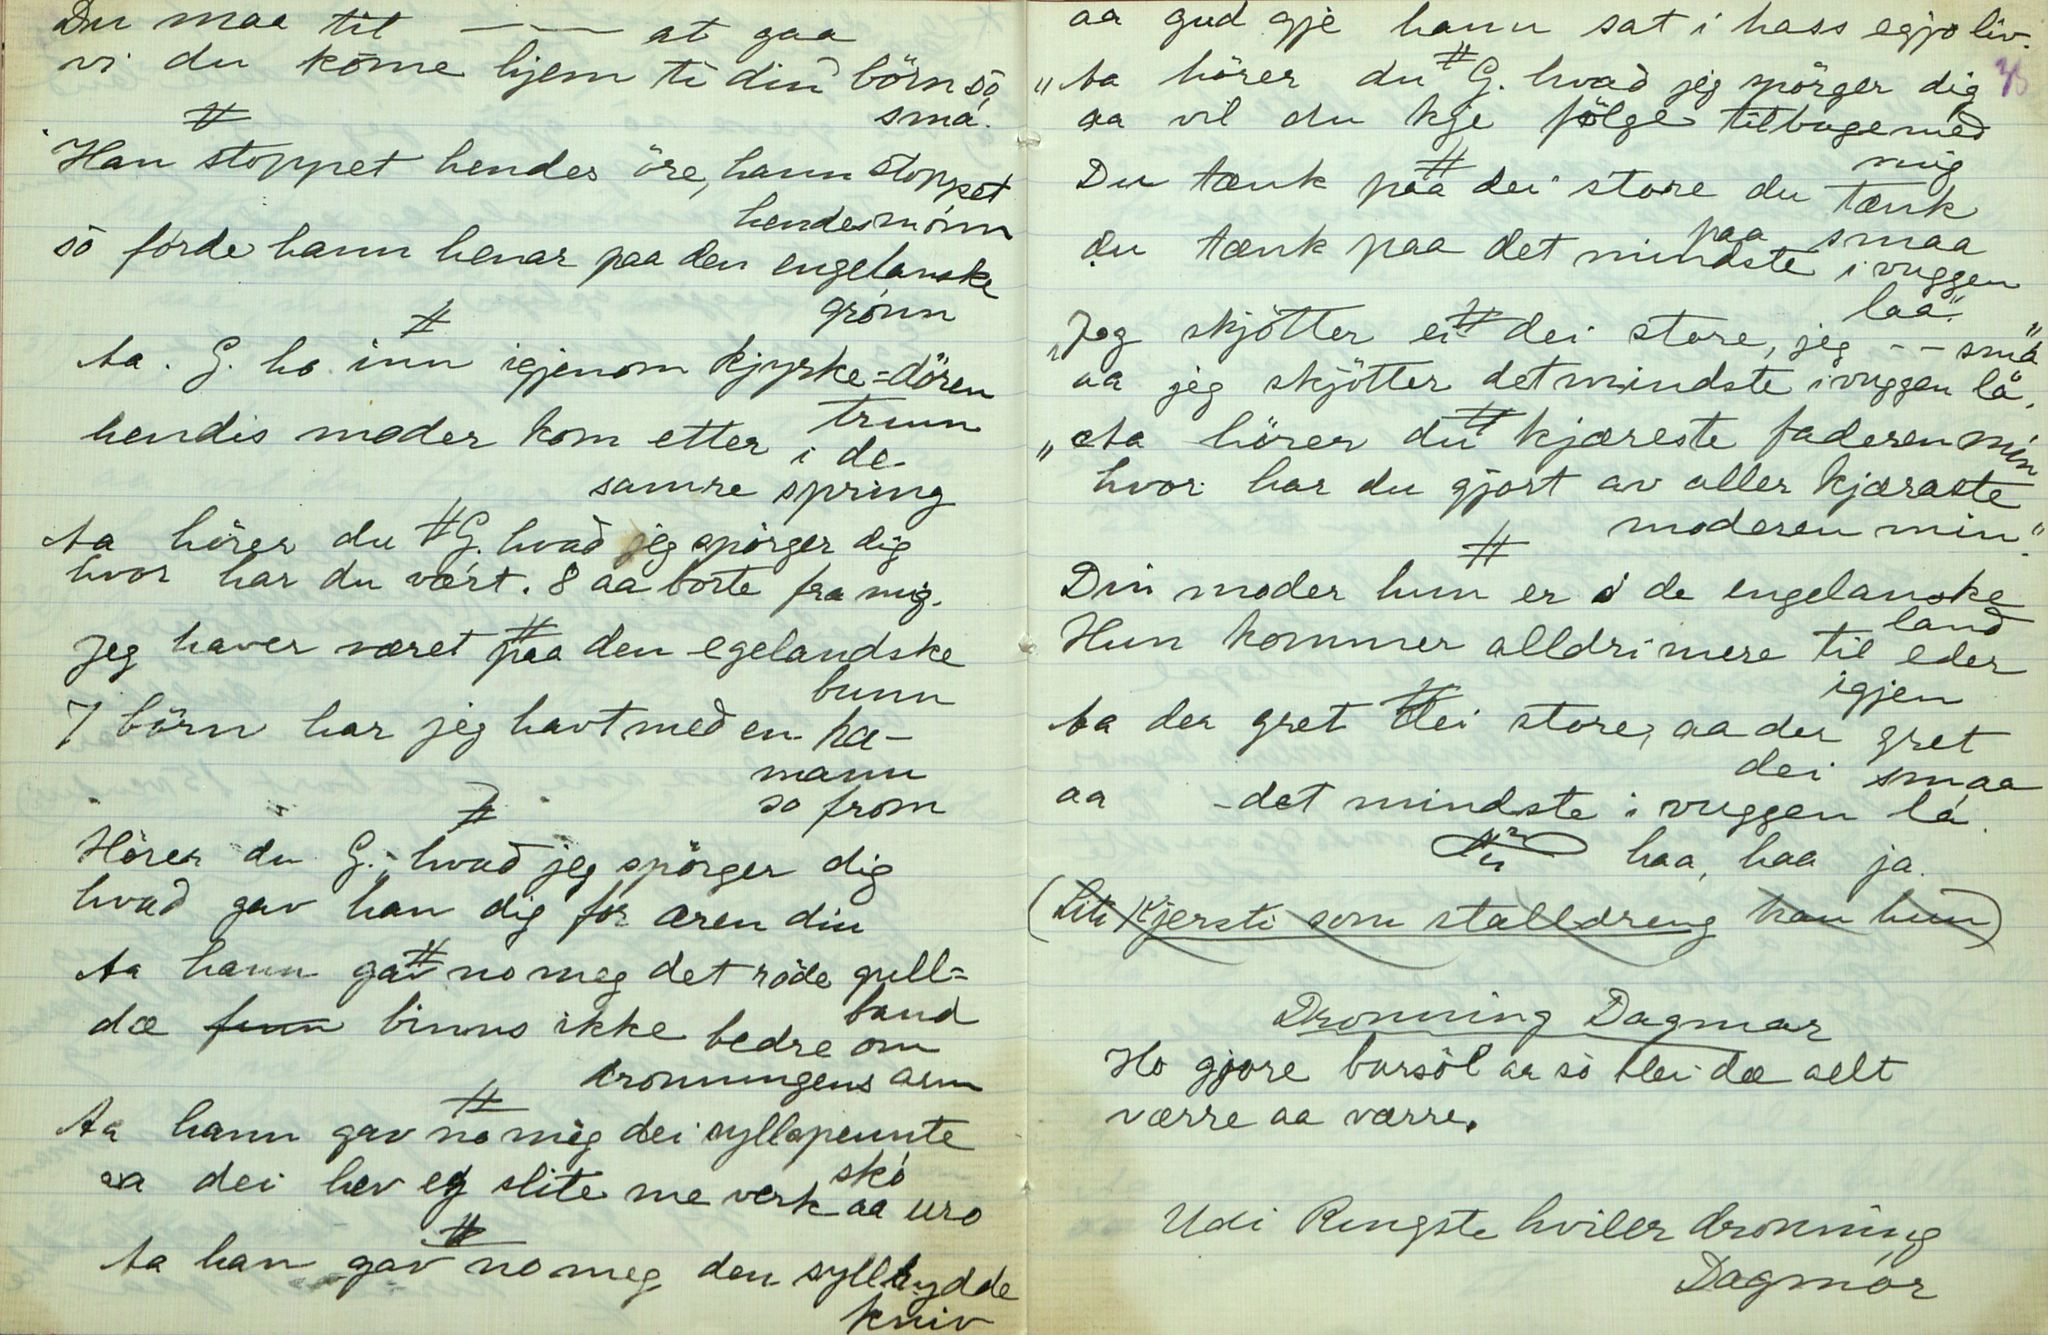 Du maa til — — at gaa
vi du kome hjem ti din börn så
små.
#
Han stoppet hendes öre, hann stoppet
hendes mónn
så förde hann henar paa den engelanske
grónn
#
Aa. G. ho inn igjenom kjyrke=dören
trinn
hendis moder kom etter i de
samre spring
#
Aa hörer du G. hvad jeg spörger dig
hvor har du vært. 8 aa borte fra mig.
#
Jeg haver været paa den egelandske
bunn
7 börn har jeg havt med en ha-
mann
so from
#
Hörer du G. hvad jeg spörger dig
hvad gav han dig for æren din
#
Aa hann gav no meg det röde gull=
band
dæ finn binns ikke bedre om
dronningens arm
#
Aa hann gav no mig dei syllspennte
skó
aa dei hev eg slite me verk aa uro
#
Aa han gav no meg den syllbydde
kniv
aa gud gje hann sat i hass egjo liv.
38
#
"Aa hörer du G. hvad jeg spörger dig
aa vil du kje fölge tilbage med
mig
#
Du tænk paa dei store du tænk
paa smaa
du tænk paa det mindste i vuggen
laa."
#
"Jeg skjötter ei dei store, jeg - - små"
aa jeg skjötter det mindste i vuggen lå.
#
"Aa hörer du kjæreste faderen min
hvor har du gjort av aller kjæraste
moderen min."
#
Din moder hun er i de engelanske
land
Hun kommer alldri mere til eder
igjen
#
Aa der gret dei store, aa der gret
dei smaa
aa - det mindste i vuggen lá.
haa, haa ja.
(Liti Kjersti som stalldreng han hun)
Dronning Dagmar
Ho gjore barsöl aa så blei dæ aelt
værre aa værre.
Udi Ringste hviler dronning
Dagmor